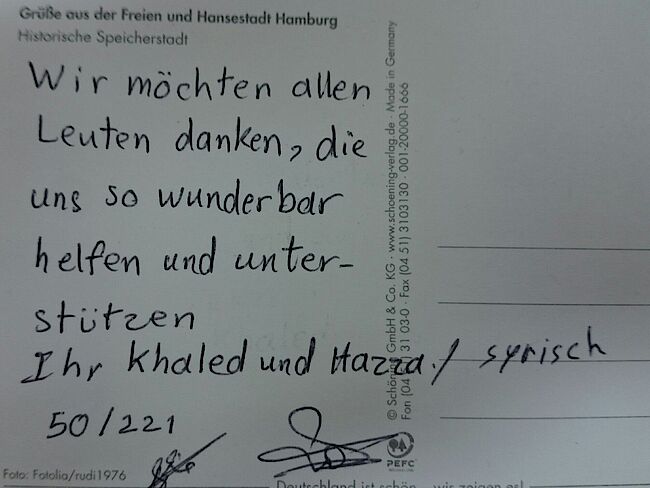 Grüße aus der Freien und Hansestadt Hamburg
Historische Speicherstadt
Wir möchten allen
Leuten danken, die
uns so wunderbar
helfen und unter-
stützen
Ihr Khaled und Hazza./ syrisch
50/221
Foto: Fotolia/rudi1976
© Schöning GmbH & Co. KG · www.schoening-verlag.de · Made in Germany
Fon (04 51) 31 03-0 · Fax (04 51) 3103130 · 001-20000-1666
PEFC
Deutschland ist schön... wir zeigen es!